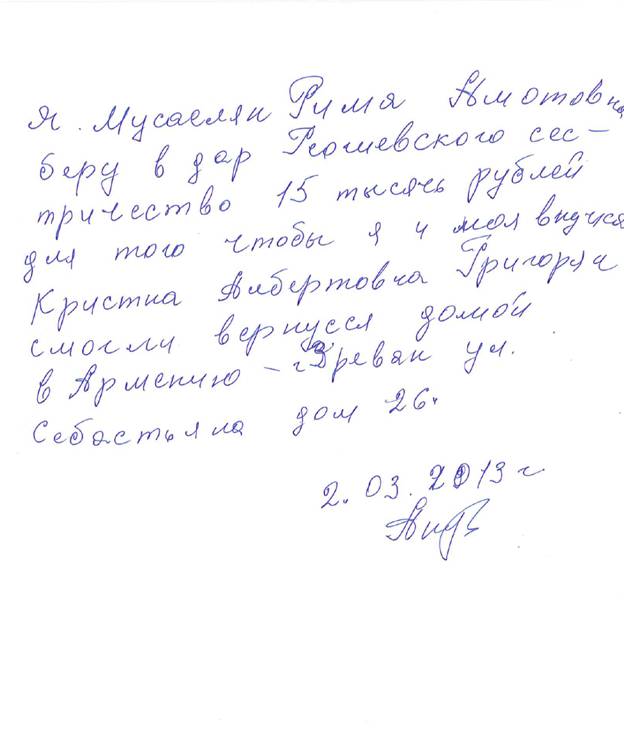 Я. Мусаелян Рима Ашотовна
беру в дар Ясошевского сес-
тричество 15 тысячь рублей
для того чтобы я и моя внучка
Кристна Албертовна Григорян
смогли вернусся домой
в Армению - г Эреван ул.
Себастьяна дом 26.
2. 03. 2013 г.